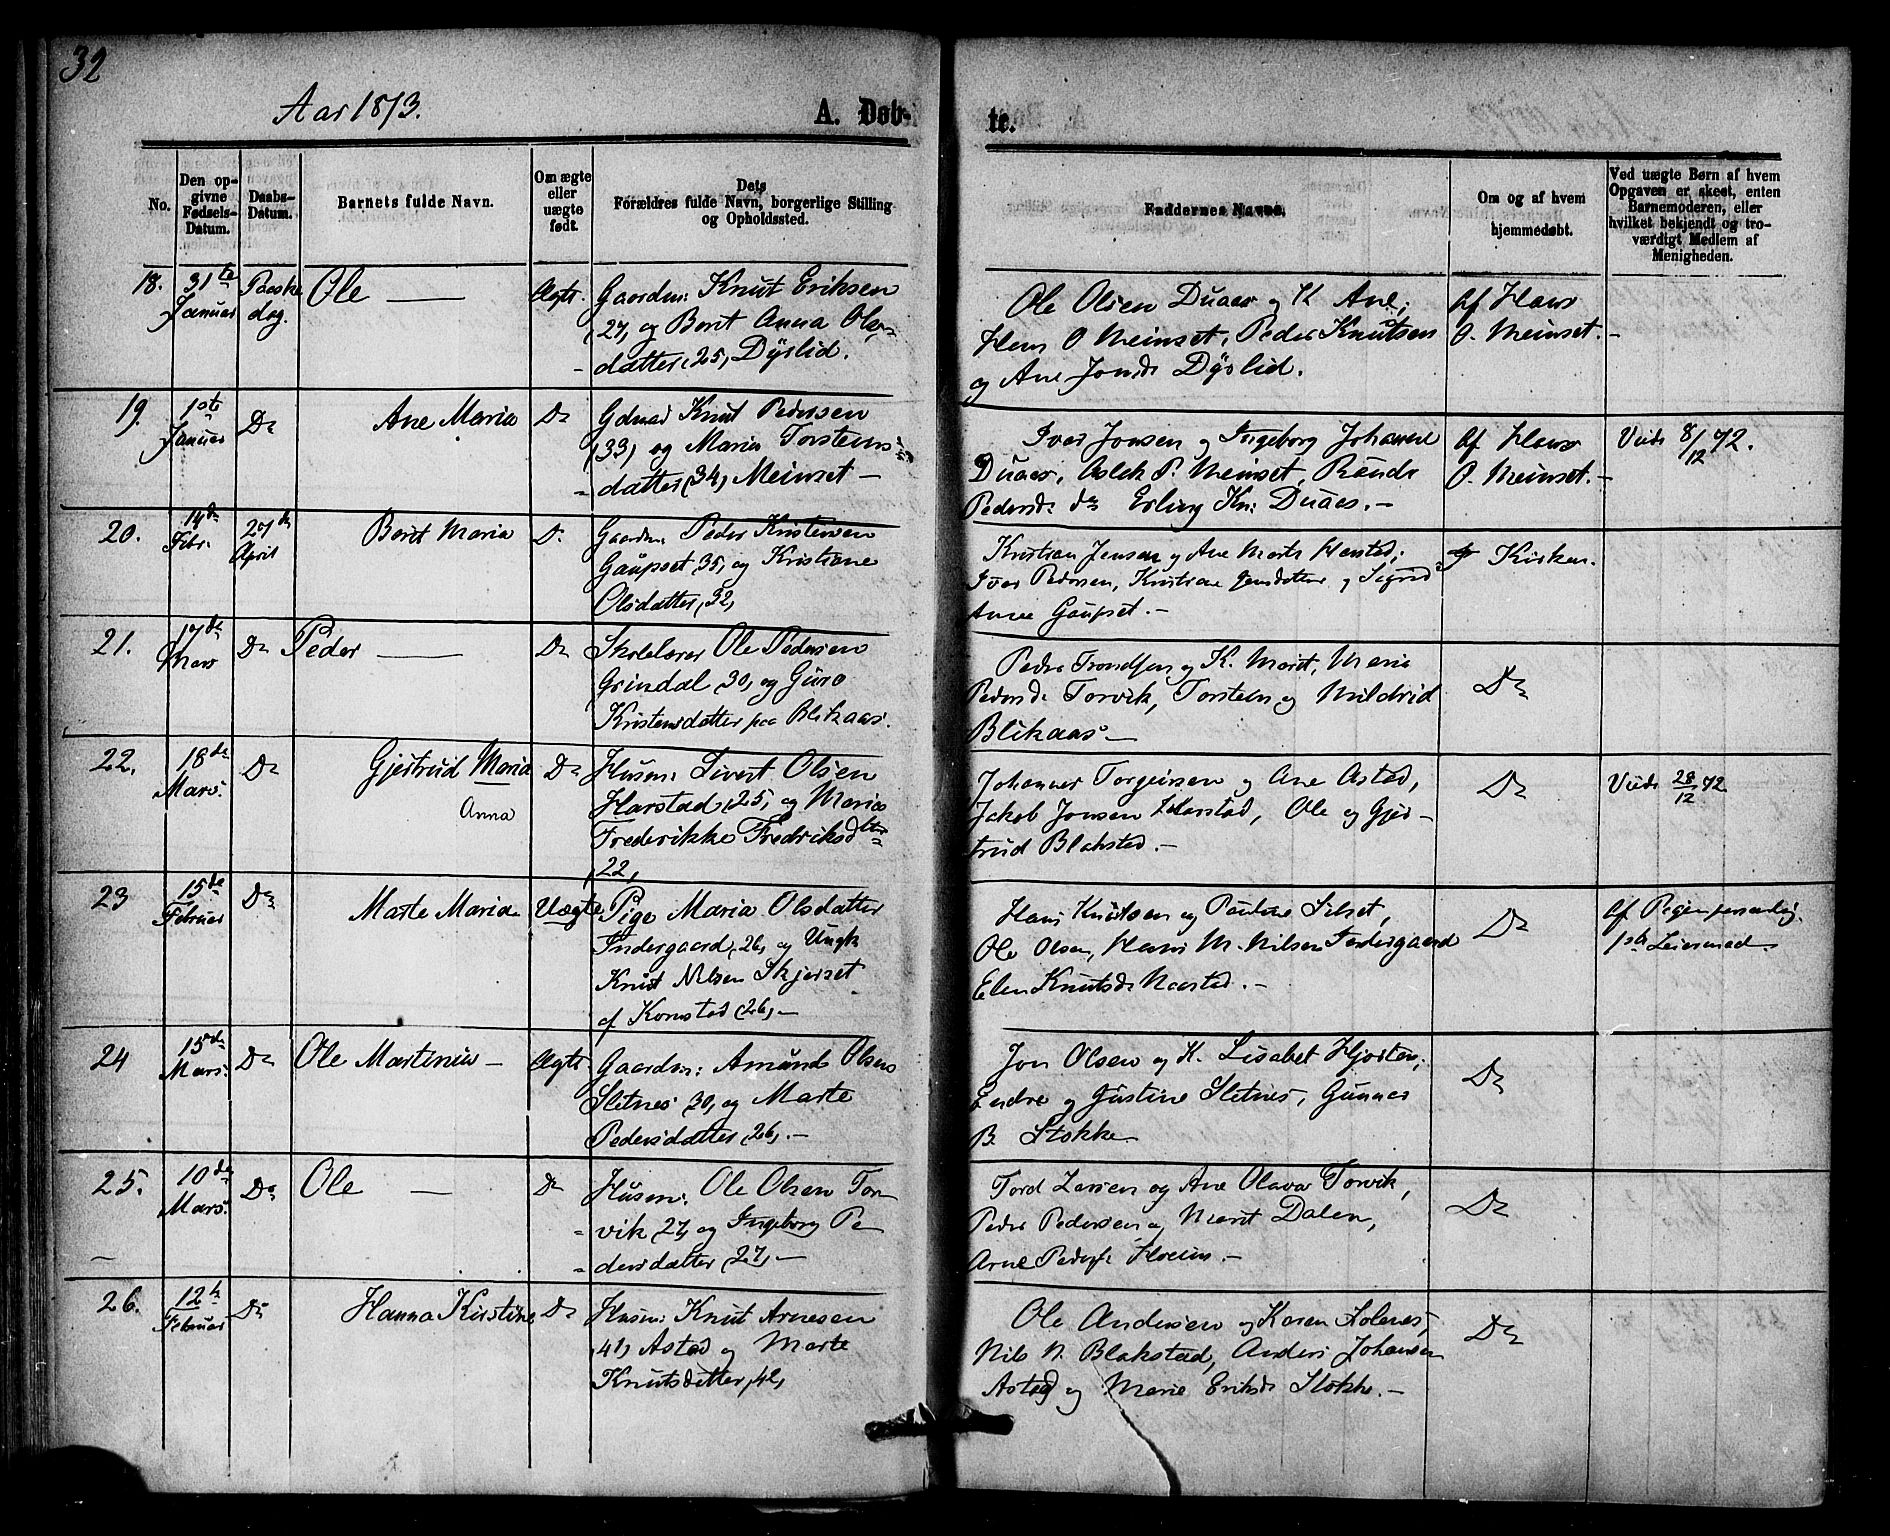 32
Aar 1873.
A. Døb-
te.
No.
Den op-
givne
Fødsels-
Datum.
Daabs-
Datum.
Barnets fulde Navn.
Om ægte
eller
uægte
født.
Dets
Forældres fulde Navn, borgerlige Stilling
og Opholdssted.
Faddernes Navne.
Om og af hvem
hjemmedøbt.
Ved uægte Børn af hvem
Opgaven er skeet, enten
Barnemoderen, eller
hvilket bekjendt og tro-
værdigt Medlem af
Menigheden.
18.
31te
Januar
Paaske
dag.
Ole
Ægte.
Gaardm: Knut Eriksen
(27) og Borit Anna Ols-
datter (25) Dyslid.
Ole Olsen Duaas og K. Ane;
Hans O Meinset, Peder Knutsen
og Ane Jonsd. Dyslid.
Af Hans
O. Meinset.
19.
1ste
Januar
Do
Ane Maria
Do
Gdmad Knut Pedersen
(33) og Maria Torstens-
datter (34) Meinset
Ivar Jonsen og Ingeborg Johanne
Duaas, Aslak P. Meinset, Rønde
Pedersd. do Erling Kn: Duaas.
Af Hans
O. Meinset.
Viede 8/12 72.
20.
14de
Febr.
27de
April
Borit Maria
Do
Gaardm: Peder Kristensen
Gaupset 35, og Kristiane
Olsdatter, 32,
Kristian Jensen og Ane Marts Harstad;
Ivar Pedersen, Kristiane Jensdatter og Sigrid
Anne Gaupset.
I Kirken.
21.
17de
Mars
Do
Peder
Do
Skolelærer Ole Pedersen
Grindal 30, og Guro
Kristensdatter paa Blikaas.
Peder Trondsen og K. Marit, Maria
Pedersd. Torvik, Torstein og Mildrid
Blikaas
Do
22.
18de
Mars.
Do
Gjertrud Maria
Anna
Do
Husm: Sivert Olsen
Harstad, 25, og Maria
Frederikke Fredriksdtter
22,
Johannes Torgeirsen og Ane Astad,
Jakob Jonsen Harstad, Ole og Gjer-
trud Blakstad.
Do
Viede 28/12 72.
23
15de
Februar
Do
Marte Maria
Uægte
Pige Maria Olsdatter
Indergaard, 26, og Ungk
Knut Nilsen Skjerset
af Kornstad (26,
Hans Knutsen og Pauline Silset,
Ole Olsen, Hans M. Nilsen Indergaard
Elen Knutsd. Naastad.
Do
Af Pigen personlig.
1ste Leiermaal
24
15de
Mars.
Do
Ole Martinus
Ægte.
Gaardm: Amund Olsen
Sletnes 30, og Marte
Pedersdatter, 26,
Jon Olsen og K. Lisabet Hjorten;
Endre og Gustine Sletnes, Gunnar
B. Stokke
Do
25.
10de
Mars.
Do
Ole
Do
Husm: Ole Olsen Tor-
vik 27, og Ingeborg Pe-
dersdatter, 27,
Tord Larsen og Ane Olava Torvik,
Peder Pedersen og Marit Dalen,
Arne Peders. Hoem.
Do
26.
12te
Februar
Do
Hanna Kirstine
Do
Husm: Knut Arnesen
(41) Astad og Marte
Knutsdatter, 42,
Ole Andersen og Karen Solenes,
Nils N. Blakstad, Anders Johansen
Astad og Marie Eriksd. Stokke.
Do